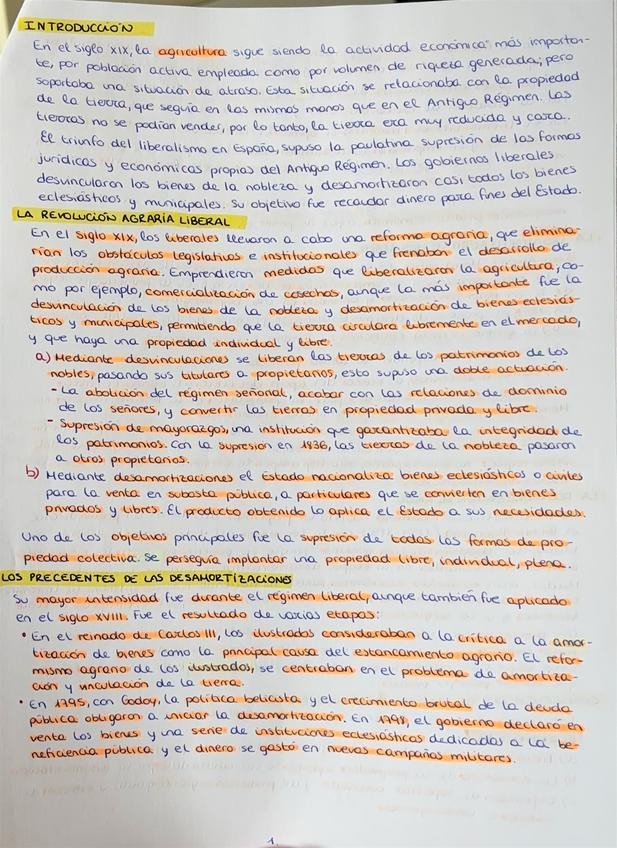 INTRODUCCIÓN
En el siglo XIX, la agricultura sigue siendo la actividad económica más importan-
te, por población activa empleada como por volumen de riqueza generada; pero
soportaba una situación de atraso. Esta situación se relacionaba con la propiedad
de la tierra, que seguía en las mismas manos que en el Antiguo Régimen. Las
tierras no se podían vender, por lo tanto, la tierra era muy reducida y cara.
El triunfo del liberalismo en España, supuso la paulatina supresión de las formas
jurídicas y económicas propias del Antiguo Régimen. Los gobiernos liberales
desvincularon los bienes de la nobleza y desamortizaron casi todos los bienes
eclesiásticos y municipales. Su objetivo fue recaudar dinero para fines del Estado.
LA REVOLUCIÓN AGRARIA LIBERAL
En el siglo XIX, los liberales llevaron a cabo una reforma agraria, que elimina-
rían los obstáculos legislativos e institucionales que frenaban el desarrollo de
producción agraria. Emprendieron medidas que liberalizaron la agricultura, co-
mo por ejemplo, comercialización de cosechas, aunque la más importante fue la
desvinculación de los bienes de la nobleza y desamortización de bienes eclesiás-
ticos y municipales, permitiendo que la tierra circulara libremente en el mercado,
y que haya una propiedad individual y libre.
a) Mediante desvinculaciones se liberan las tierras de los patrimonios de los
nobles, pasando sus titulares a propietarios, esto supuso una doble actuación.
- La abolición del régimen señorial, acabar con las relaciones de dominio
de los señores, y convertir las tierras en propiedad privada y libre.
- Supresión de mayorazgos, una institución que garantizaba la integridad de
los patrimonios. Con la supresión en 1836, las tierras de la nobleza pasaron
a otros propietarios.
b) Mediante desamortizaciones el Estado nacionaliza bienes eclesiásticos o civiles
para la venta en subasta pública, a particulares que se convierten en bienes
privados y libres. El producto obtenido lo aplica el Estado a sus necesidades.
Uno de los objetivos principales fue la supresión de todas las formas de pro-
piedad colectiva. Se perseguía implantar una propiedad libre, individual, plena.
LOS PRECEDENTES DE LAS DESAMORTIZACIONES
Su mayor intensidad fue durante el régimen liberal, aunque también fue aplicado
en el siglo XVIII. Fue el resultado de varias etapas:
• En el reinado de Carlos III, los ilustrados consideraban a la crítica a la amor-
tización de bienes como la principal causa del estancamiento agrario. El refor-
mismo agrario de los ilustrados, se centraban en el problema de amortiza-
ción y vinculación de la tierra.
• En 1795, con Godoy, la política belicista y el crecimiento brutal de la deuda
pública obligaron a iniciar la desamortización. En 1798, el gobierno declaró en
venta los bienes y una serie de instituciones eclesiásticos dedicadas a la be-
neficiencia pública y el dinero se gastó en nuevas campañas militares.
1